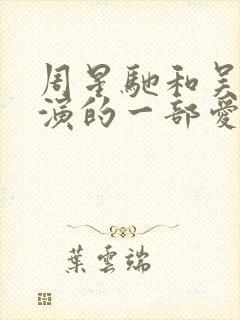 周星馳和吴
演的一部愛
葉雲端